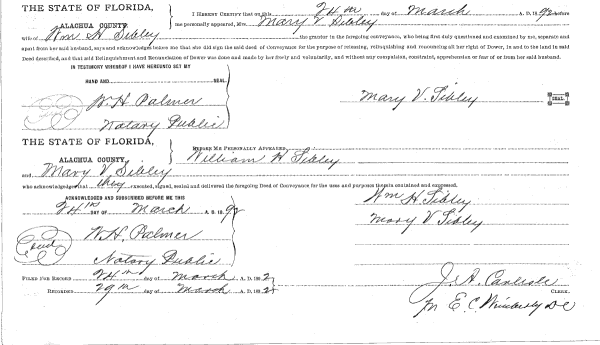 THE STATE OF FLORIDA,
ALACHUA COUNTY.
I HEREBY CERTIFY that on this 24th day of March A. D. 1892 before
me personally appeared, Mrs. Mary V Sibley
wife of Wm H Sibley the grantor in the foregoing conveyance, who being first duly questioned and examined by me, separate and
apart from her said husband, says and acknowledges before me that she did sign the said deed of Conveyance for the purpose of releasing, relinquishing and renouncing all her right of Dower, in and to the land in said
Deed described, and that said Relinquishment and Renunciation of Dower was done and made by her freely and voluntarily, and without any compulsion, constraint, apprehension or fear of or from her said husband.
IN TESTIMONY WHEREOF I HAVE HEREUNTO SET MY
HAND AND SEAL
W. H. Palmer
Mary V. Sibley
SEAL
Notary Public
THE STATE OF FLORIDA,
ALACHUA COUNTY.
BEFORE ME PERSONALLY APPEARED
William H Sibley
and Mary V Sibley
who acknowledged that they executed, signed, sealed and delivered the foregoing Deed of Conveyance for the uses and purposes therein contained and expressed.
ACKNOWLEDGED AND SUBSCRIBED BEFORE ME THIS
Wm H. Sibley
24th DAY OF March A. D. 1892
Mary V Sibley
W. H. Palmer
Notary Public
FILED FOR RECORD 24th day of March A. D. 1892
J. A. Carlisle
CLERK.
RECORDED 29th day of March A. D. 1892
E. C. Wimberly DC